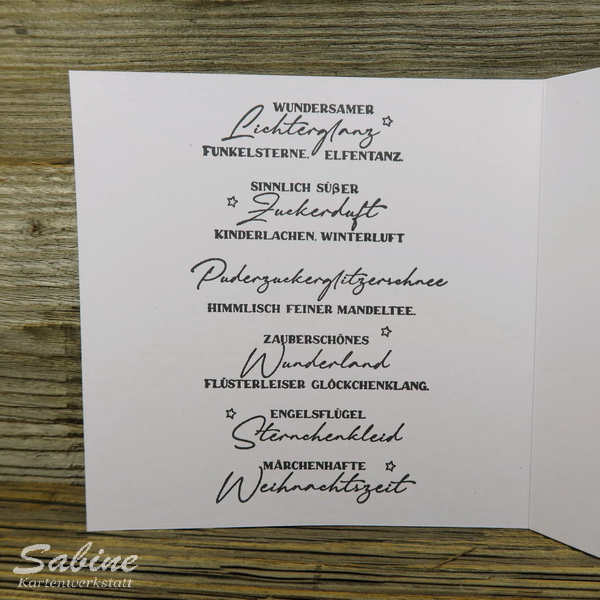 WUNDERSAMER
Lichterglanz
FUNKELSTERNE. ELFENTANZ.
SINNLICH SÜßER
Zuckerduft
KINDERLACHEN, WINTERLUFT
Puderzuckerglitzerschnee
HIMMLISCH FEINER MANDELTEE.
ZAUBERSCHÖNES
Wunderland
FLÜSTERLEISER GLÖCKCHENKLANG.
ENGELSFLÜGEL
Sternchenkleid
MÄRCHENHAFTE
Weihnachtszeit
Sabine
Kartenwerkstatt